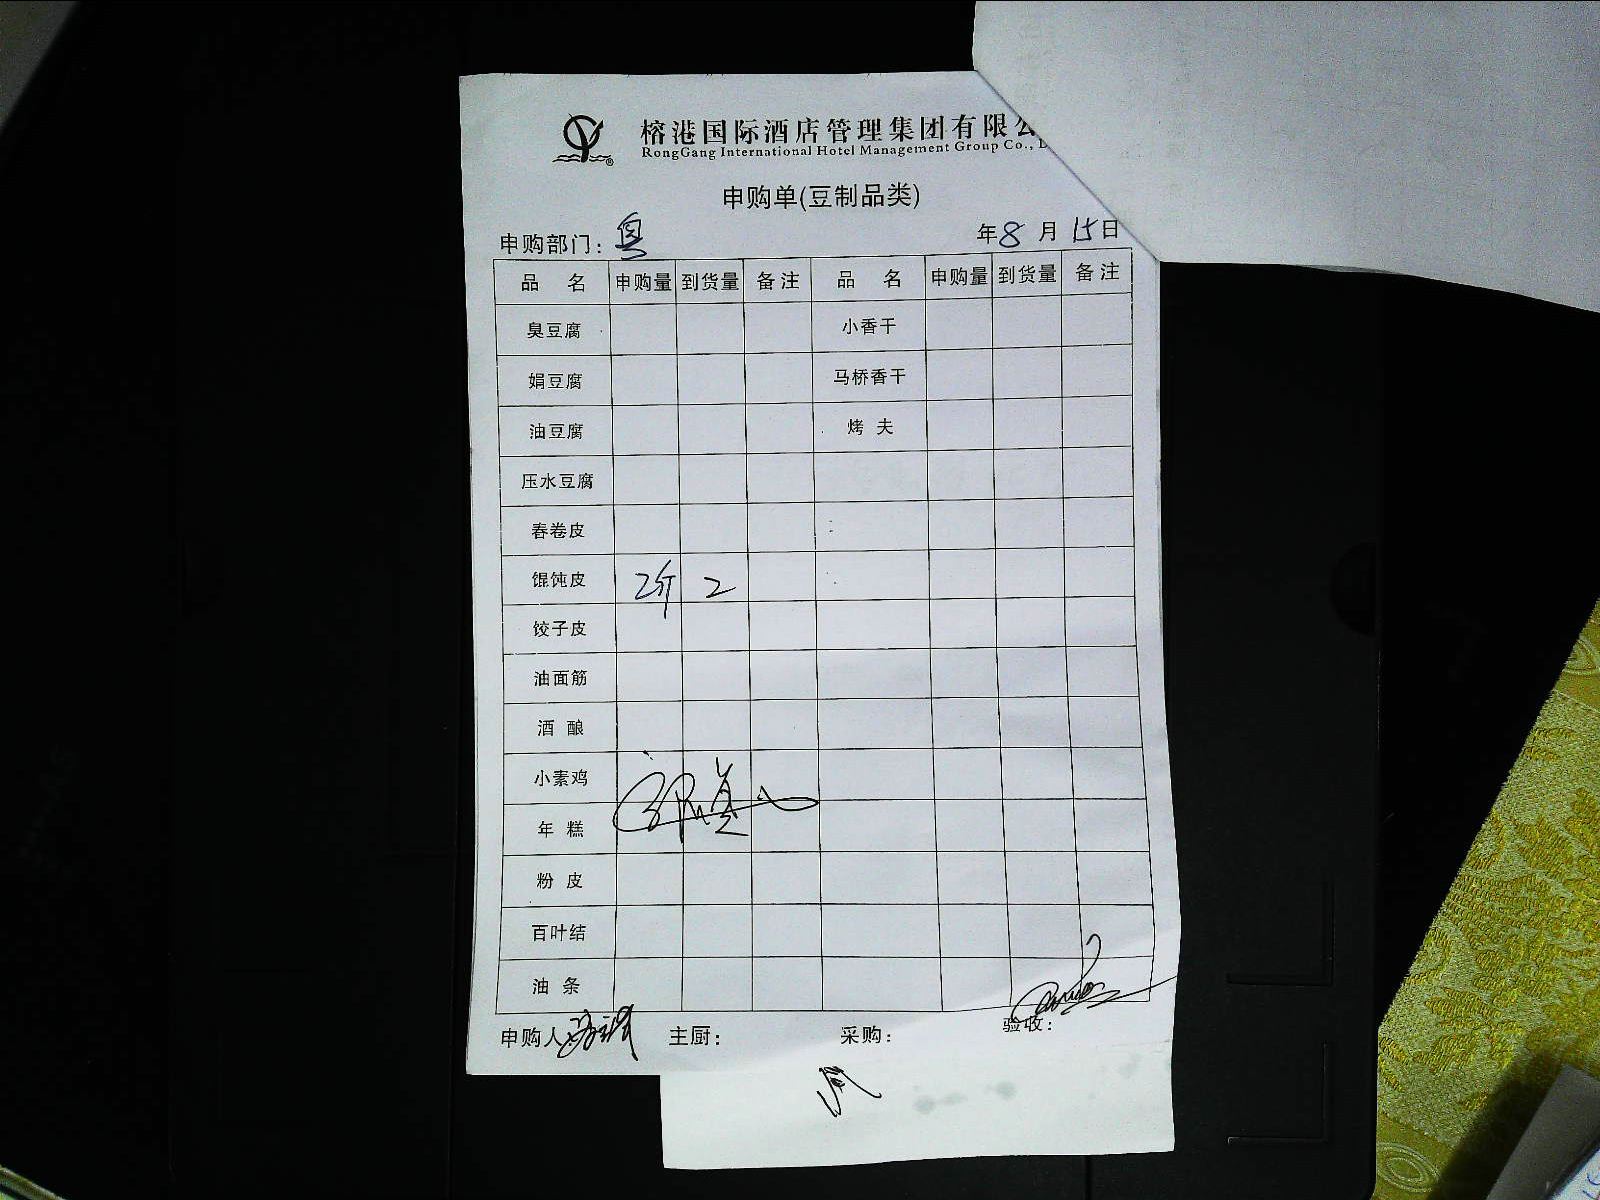 榕港国际酒店管理集团有限公
RongGang International Hotel Management Group Co.,
申购单(豆制品类)
申购部门: 粤
年8月15日
品名 申购量 到货量 备注 品名 申购量 到货量 备注
臭豆腐 小香干
娟豆腐 马桥香干
油豆腐 烤夫
压水豆腐
春卷皮
馄饨皮 2斤 2
饺子皮
油面筋
酒酿
小素鸡
年糕
粉皮
百叶结
油条
申购人 主厨: 采购: 验收: